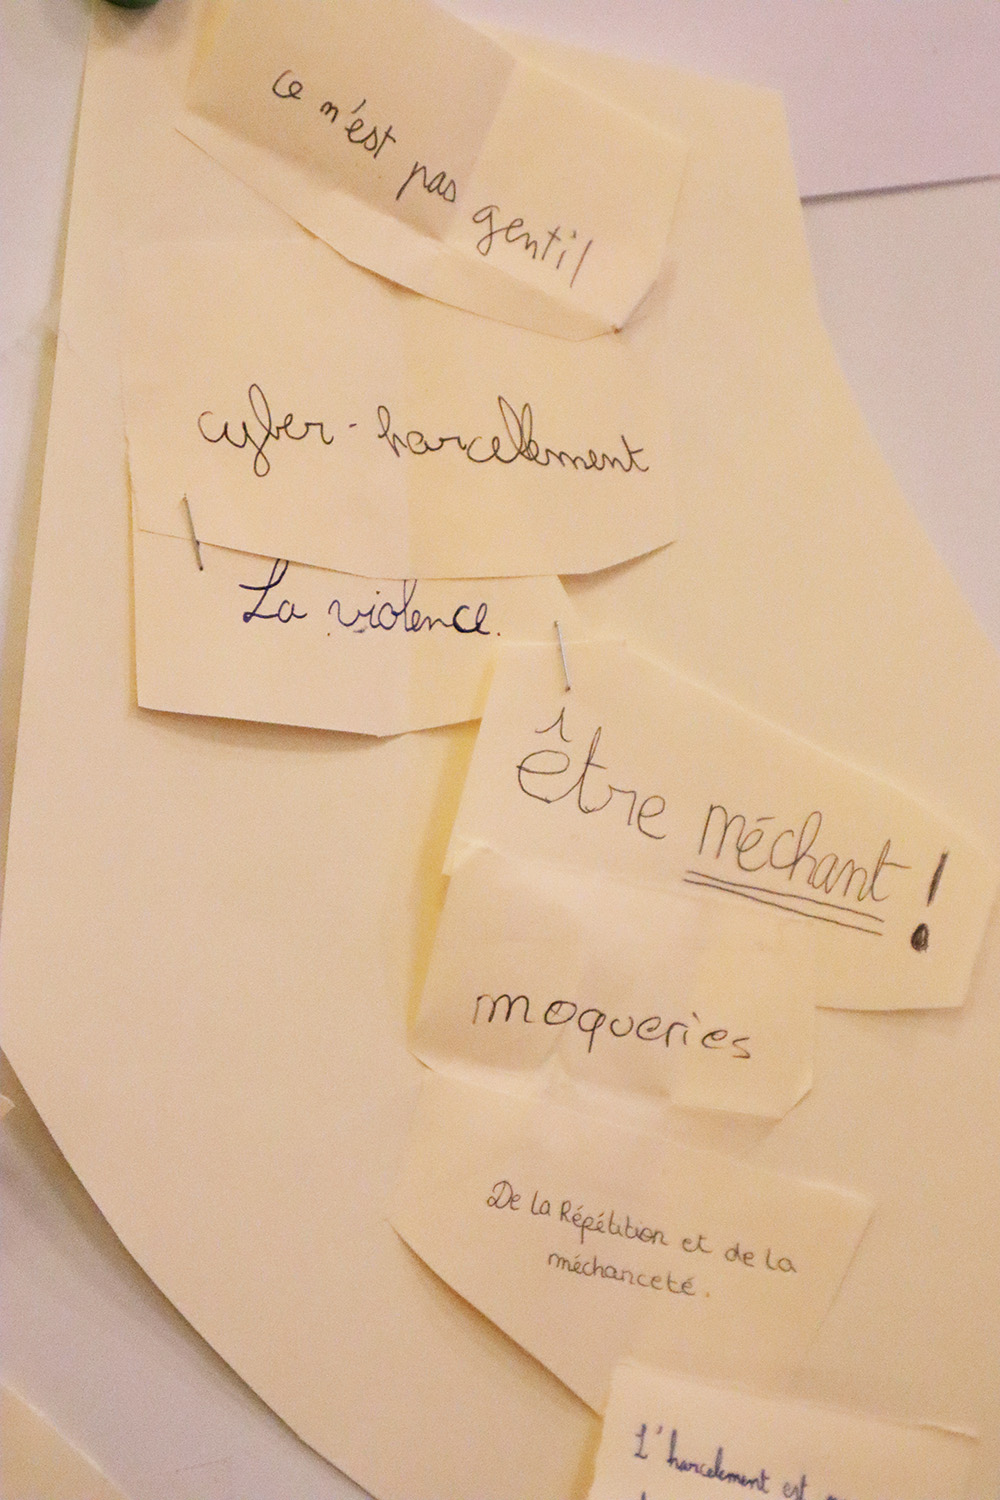 ce n'est pas gentil
cyber-harcellement
La violence.
être méchant !
moqueries
De la Répétition et de la
méchanceté.
L'harcelement est